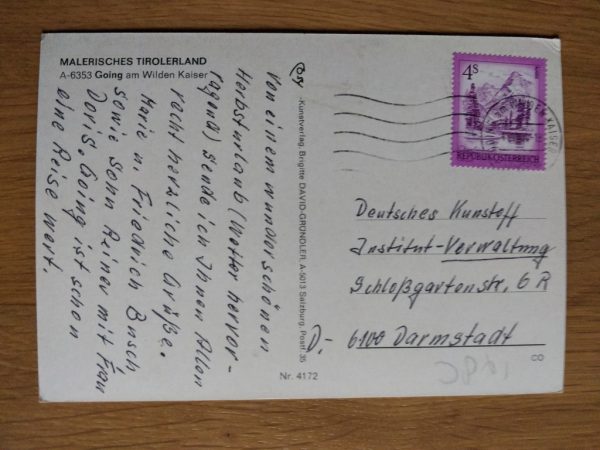 MALERISCHES TIROLERLAND
A-6353 Going am Wilden Kaiser
Von einem wunderschönen
Herbsturlaub (Wetter hervor-
ragend) sende ich Ihnen Allen
recht herzliche Grüße.
Marie u. Friedrich Busch
sowie Sohn Reiner mit Frau
Doris. Going ist schon
eine Reise wert.
-Kunstverlag, Brigitte DAVID-GRÜNDLER, A-5013 Salzburg, Postf. 35
Nr. 4172
4S
REPUBLIK ÖSTERREICH
WILDEN KAISER
Deutsches Kunstoff
Institut-Verwaltung
Schloßgartenstr. 6 R
D.- 6100 Darmstadt
CO